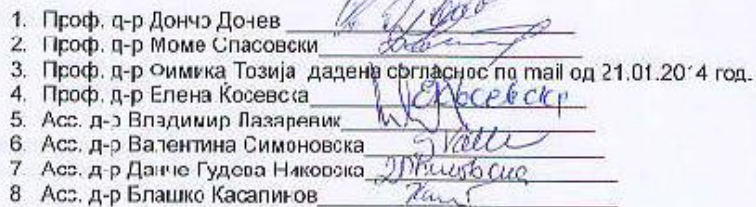 1. Проф. д-р Дончо Донев
2. Проф. д-р Моме Спасовски
3. Проф. д-р Фимика Тозија дадена согласнос по mail од 21.01.2014 год.
4. Проф. д-р Елена Ќосевска
5. Асс. д-р Владимир Лазаревик
6. Асс. д-р Валентина Симоновска
7 Асс. д-р Данче Гудева Никовска
8 Асс. д-р Блашко Касапинов